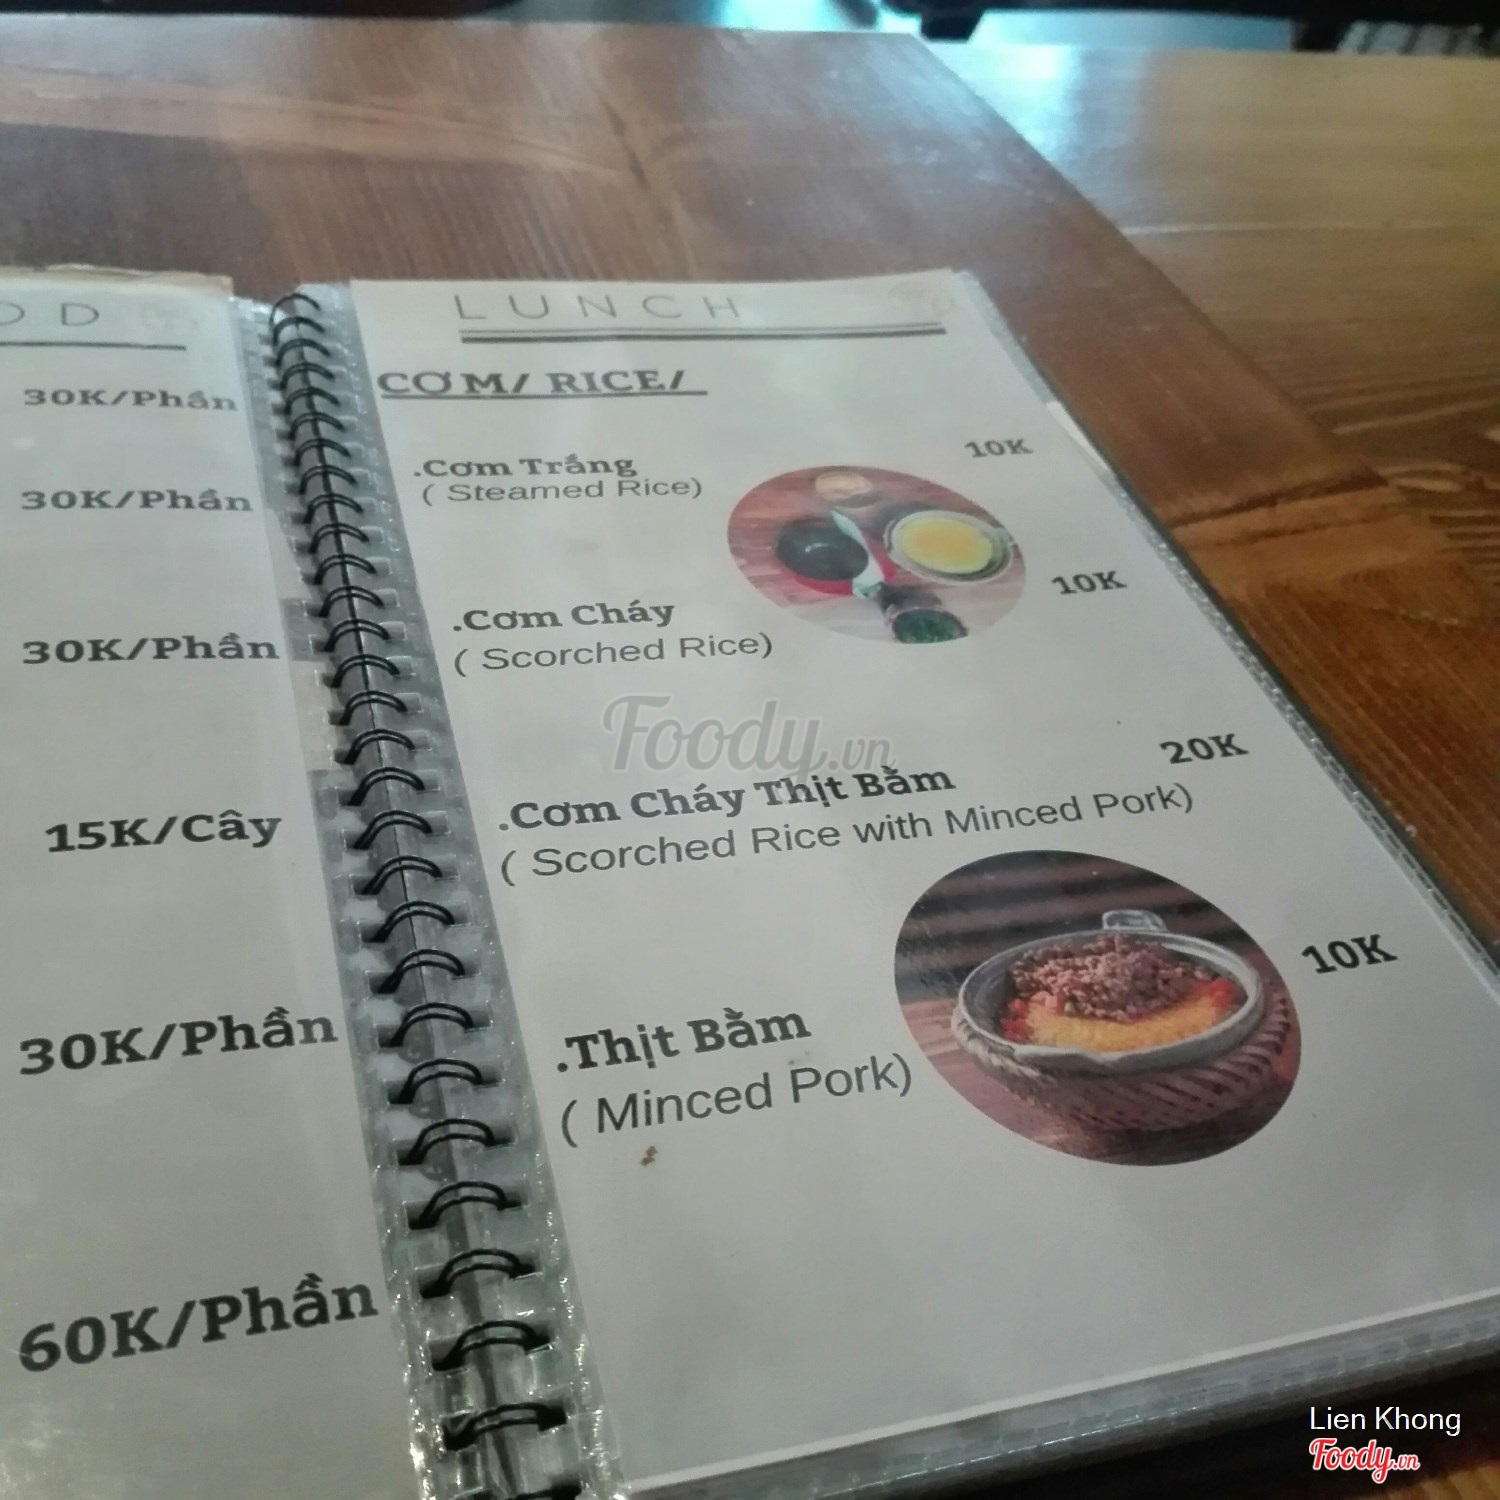 OD
30K/Phần
30K/Phần
30K/Phần
15K/Cây
30K/Phần
60K/Phần
LUNCH
CƠM/ RICE/
.Cơm Trắng 10K
( Steamed Rice)
.Cơm Cháy 10K
( Scorched Rice)
Foody.vn
.Cơm Cháy Thịt Bằm 20K
( Scorched Rice with Minced Pork)
.Thịt Bằm 10K
( Minced Pork)
Lien Khong
Foody.vn